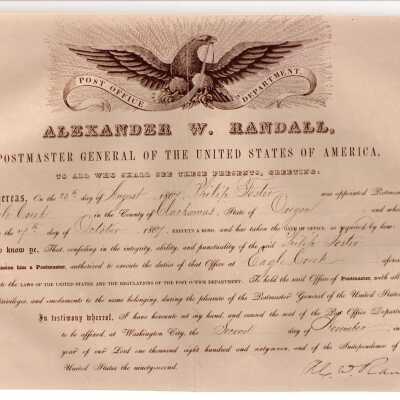 POST OFFICE DEPARTMENT.
ALEXANDER W. RANDALL,
POSTMASTER GENERAL OF THE UNITED STATES OF AMERICA,
TO ALL WHO SHALL SEE THESE PRESENTS, GREETING:
ereas, On the day of August 1867, Philip Foster was appointed Postma
le Creek in the County of Clackamas, State of Oregon and whe
the day of October 1867, EXECUTE A BOND and has taken the OATH OF OFFICE, as required by law:
know ye, That, confiding in the integrity, ability, and punctuality of the said Philip Foster
ission him a Postmaster, authorized to execute the duties of that Office at Eagle Creek afores
to the LAWS OF THE UNITED STATES AND THE REGULATIONS OF THE POST OFFICE DEPARTMENT. To hold the said Office of Postmaster, with all
rivileges, and emoluments to the same belonging, during the pleasure of the Postmaster General of the United States
In testimony whereof, I have hereunto set my hand, and caused the seal of the Post Office Depart
to be affixed, at Washington City, the Second day of in
year of our Lord one thousand eight hundred and sixty-seven, and of the Independence of
United States the ninety-second.
Alex W. Ran